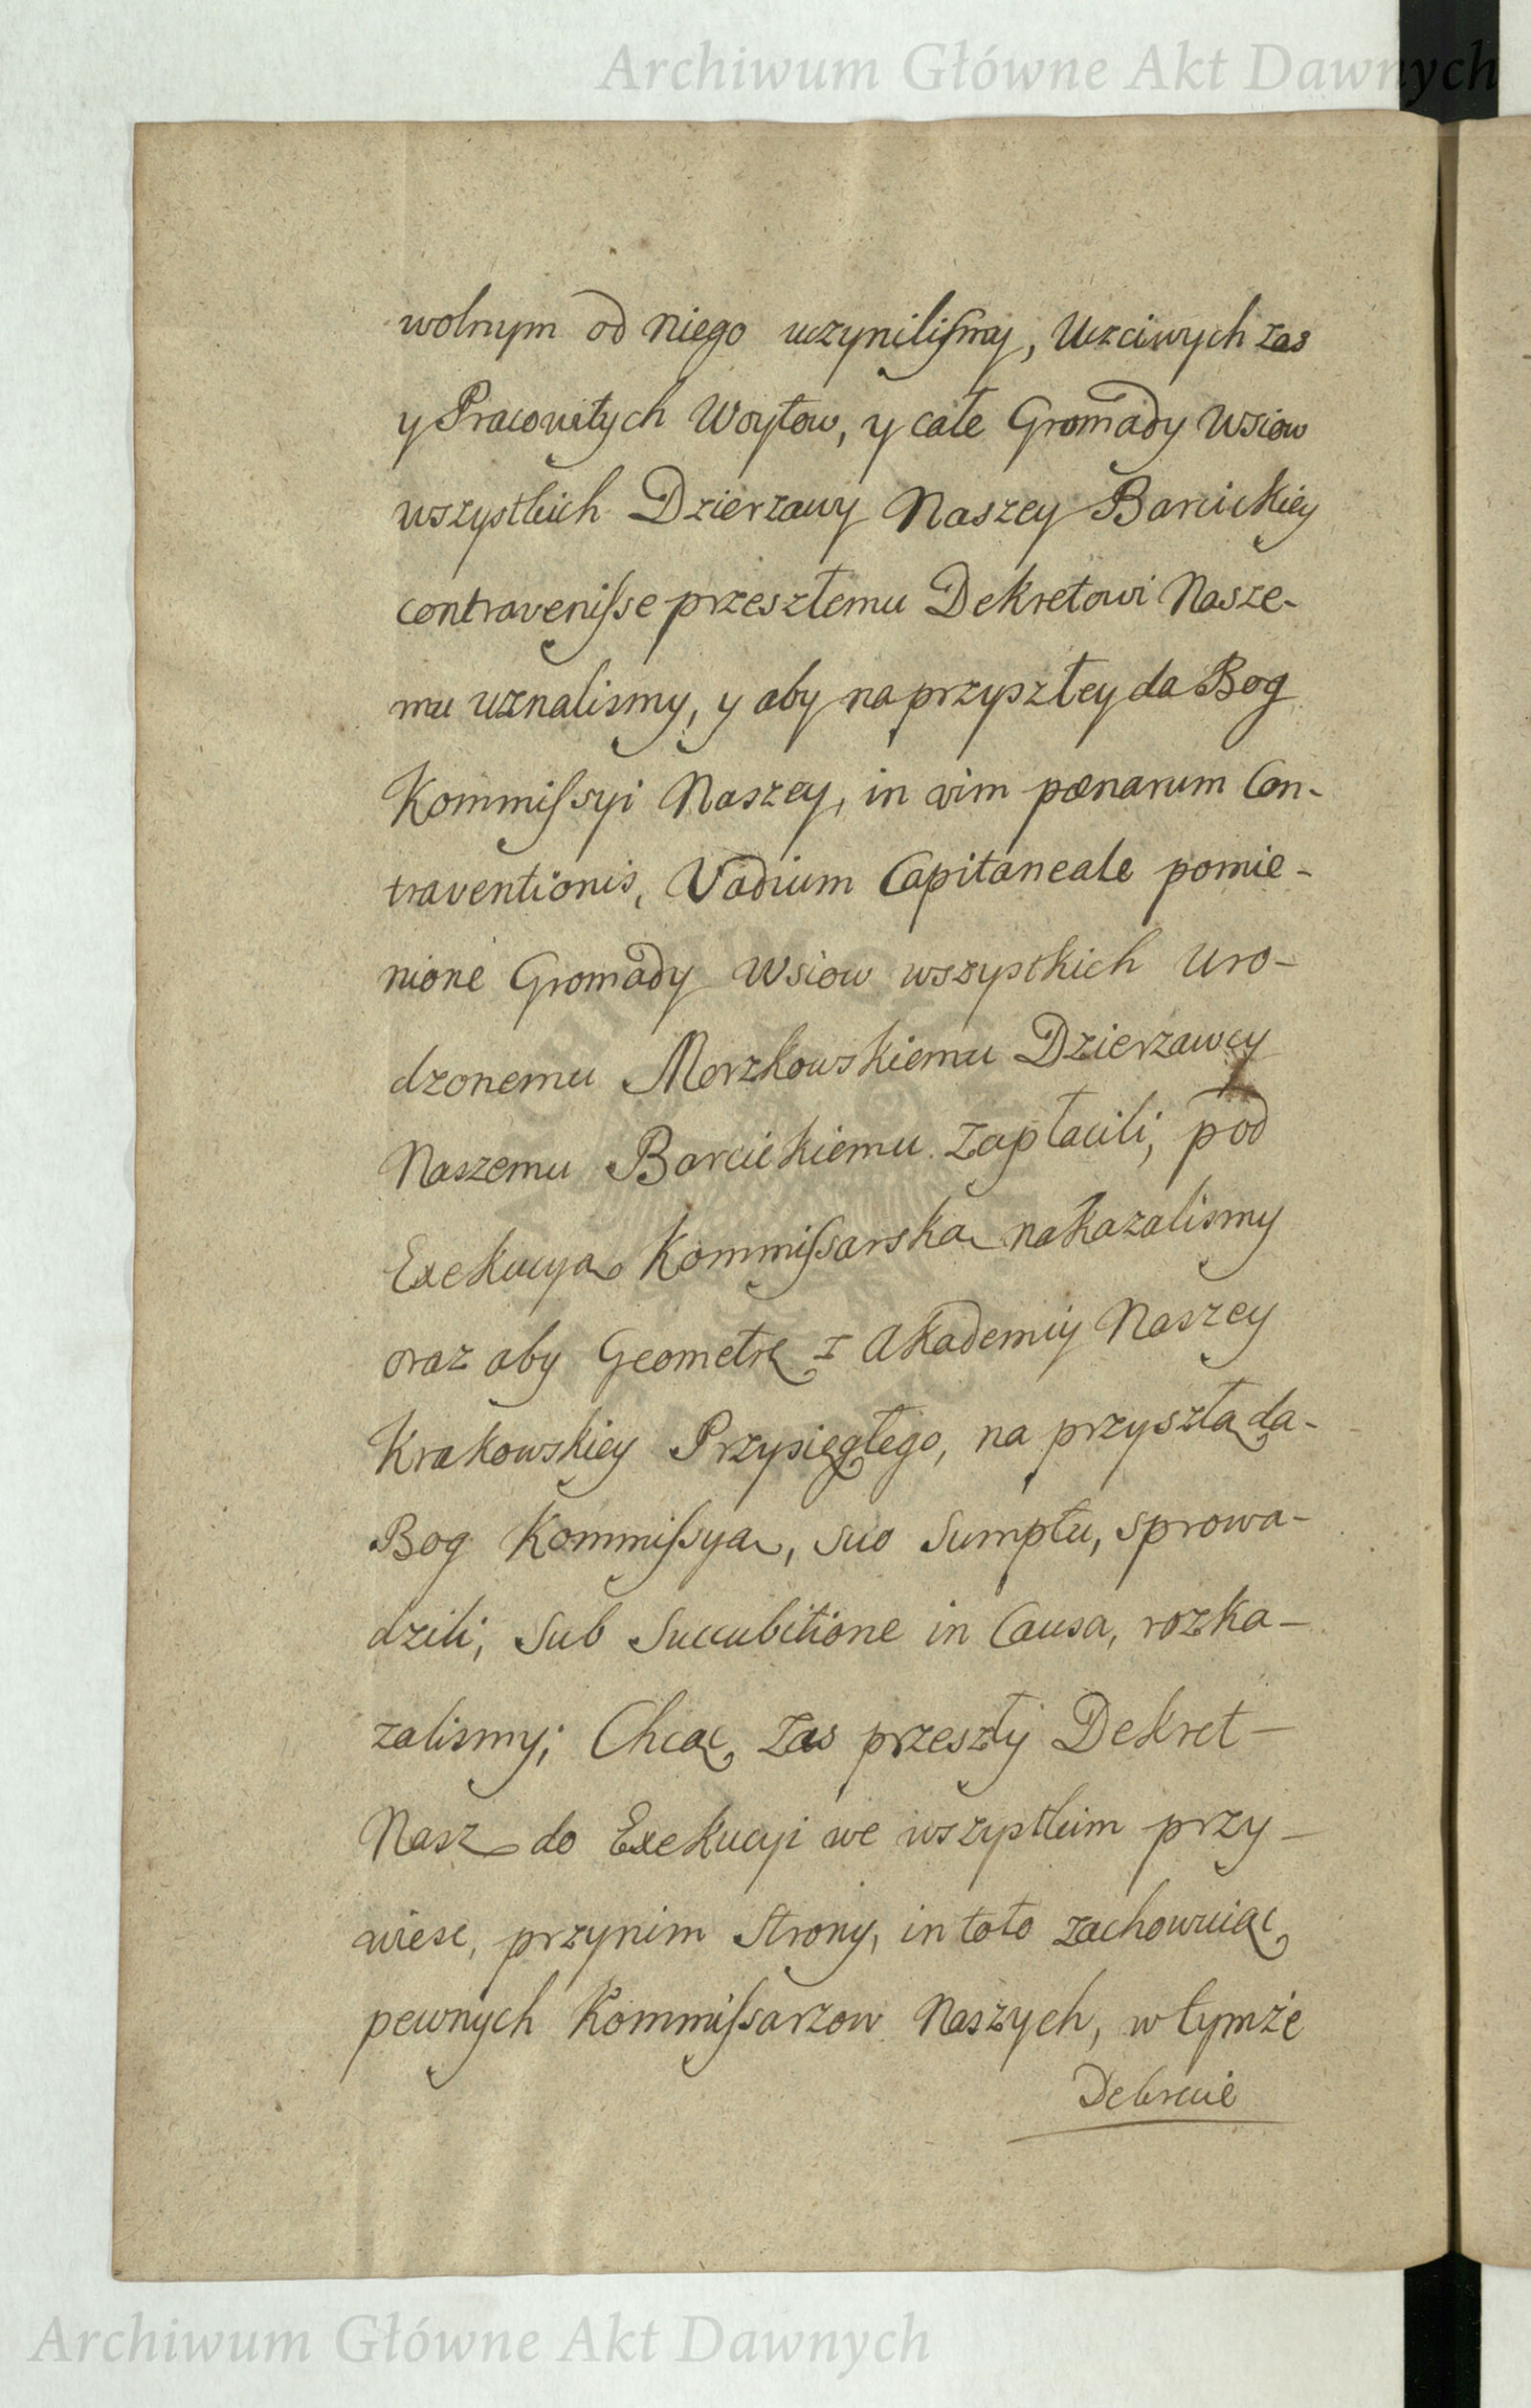 Archiwum Główne Akt Dawnych
wolnym od niego uczyniliſmy, Uczciwych zas
y Pracowitych Woytow, y całe Gromady Wsiow
wszystkich Dzierzawy Naszey Barcickiey
contraveniſse przeszłemu Dekretowi Nasze-
mu uznalismy, y aby na przyszłey da Bog
Kommiſsyi Naszey, in vim pænarum Con-
traventionis, Vadium Capitaneale pomie-
nione Gromady Wsiow wszystkich Uro-
dzonemu Morzkowskiemu Dzierzawcy
Naszemu Barcickiemu zapłacili, pod
Exekucyą Kommiſsarską nakazalismy
oraz aby Geometrę z Akademiy Naszey
Krakowskiey Przysięgłego, na przyszłą da-
Bog Kommiſsyą, suo Sumptu, sprowa-
dzili, Sub Succubitione in Causa, rozka-
zalismy; Chcąc zas przeszły Dekret
Nasz do Exekucyi we wszystkim przy-
wiesc, przynim Strony, in toto zachowuiąc,
pewnych Kommiſsarzow Naszych, w tymże
Dekrecie
Archiwum Główne Akt Dawnych